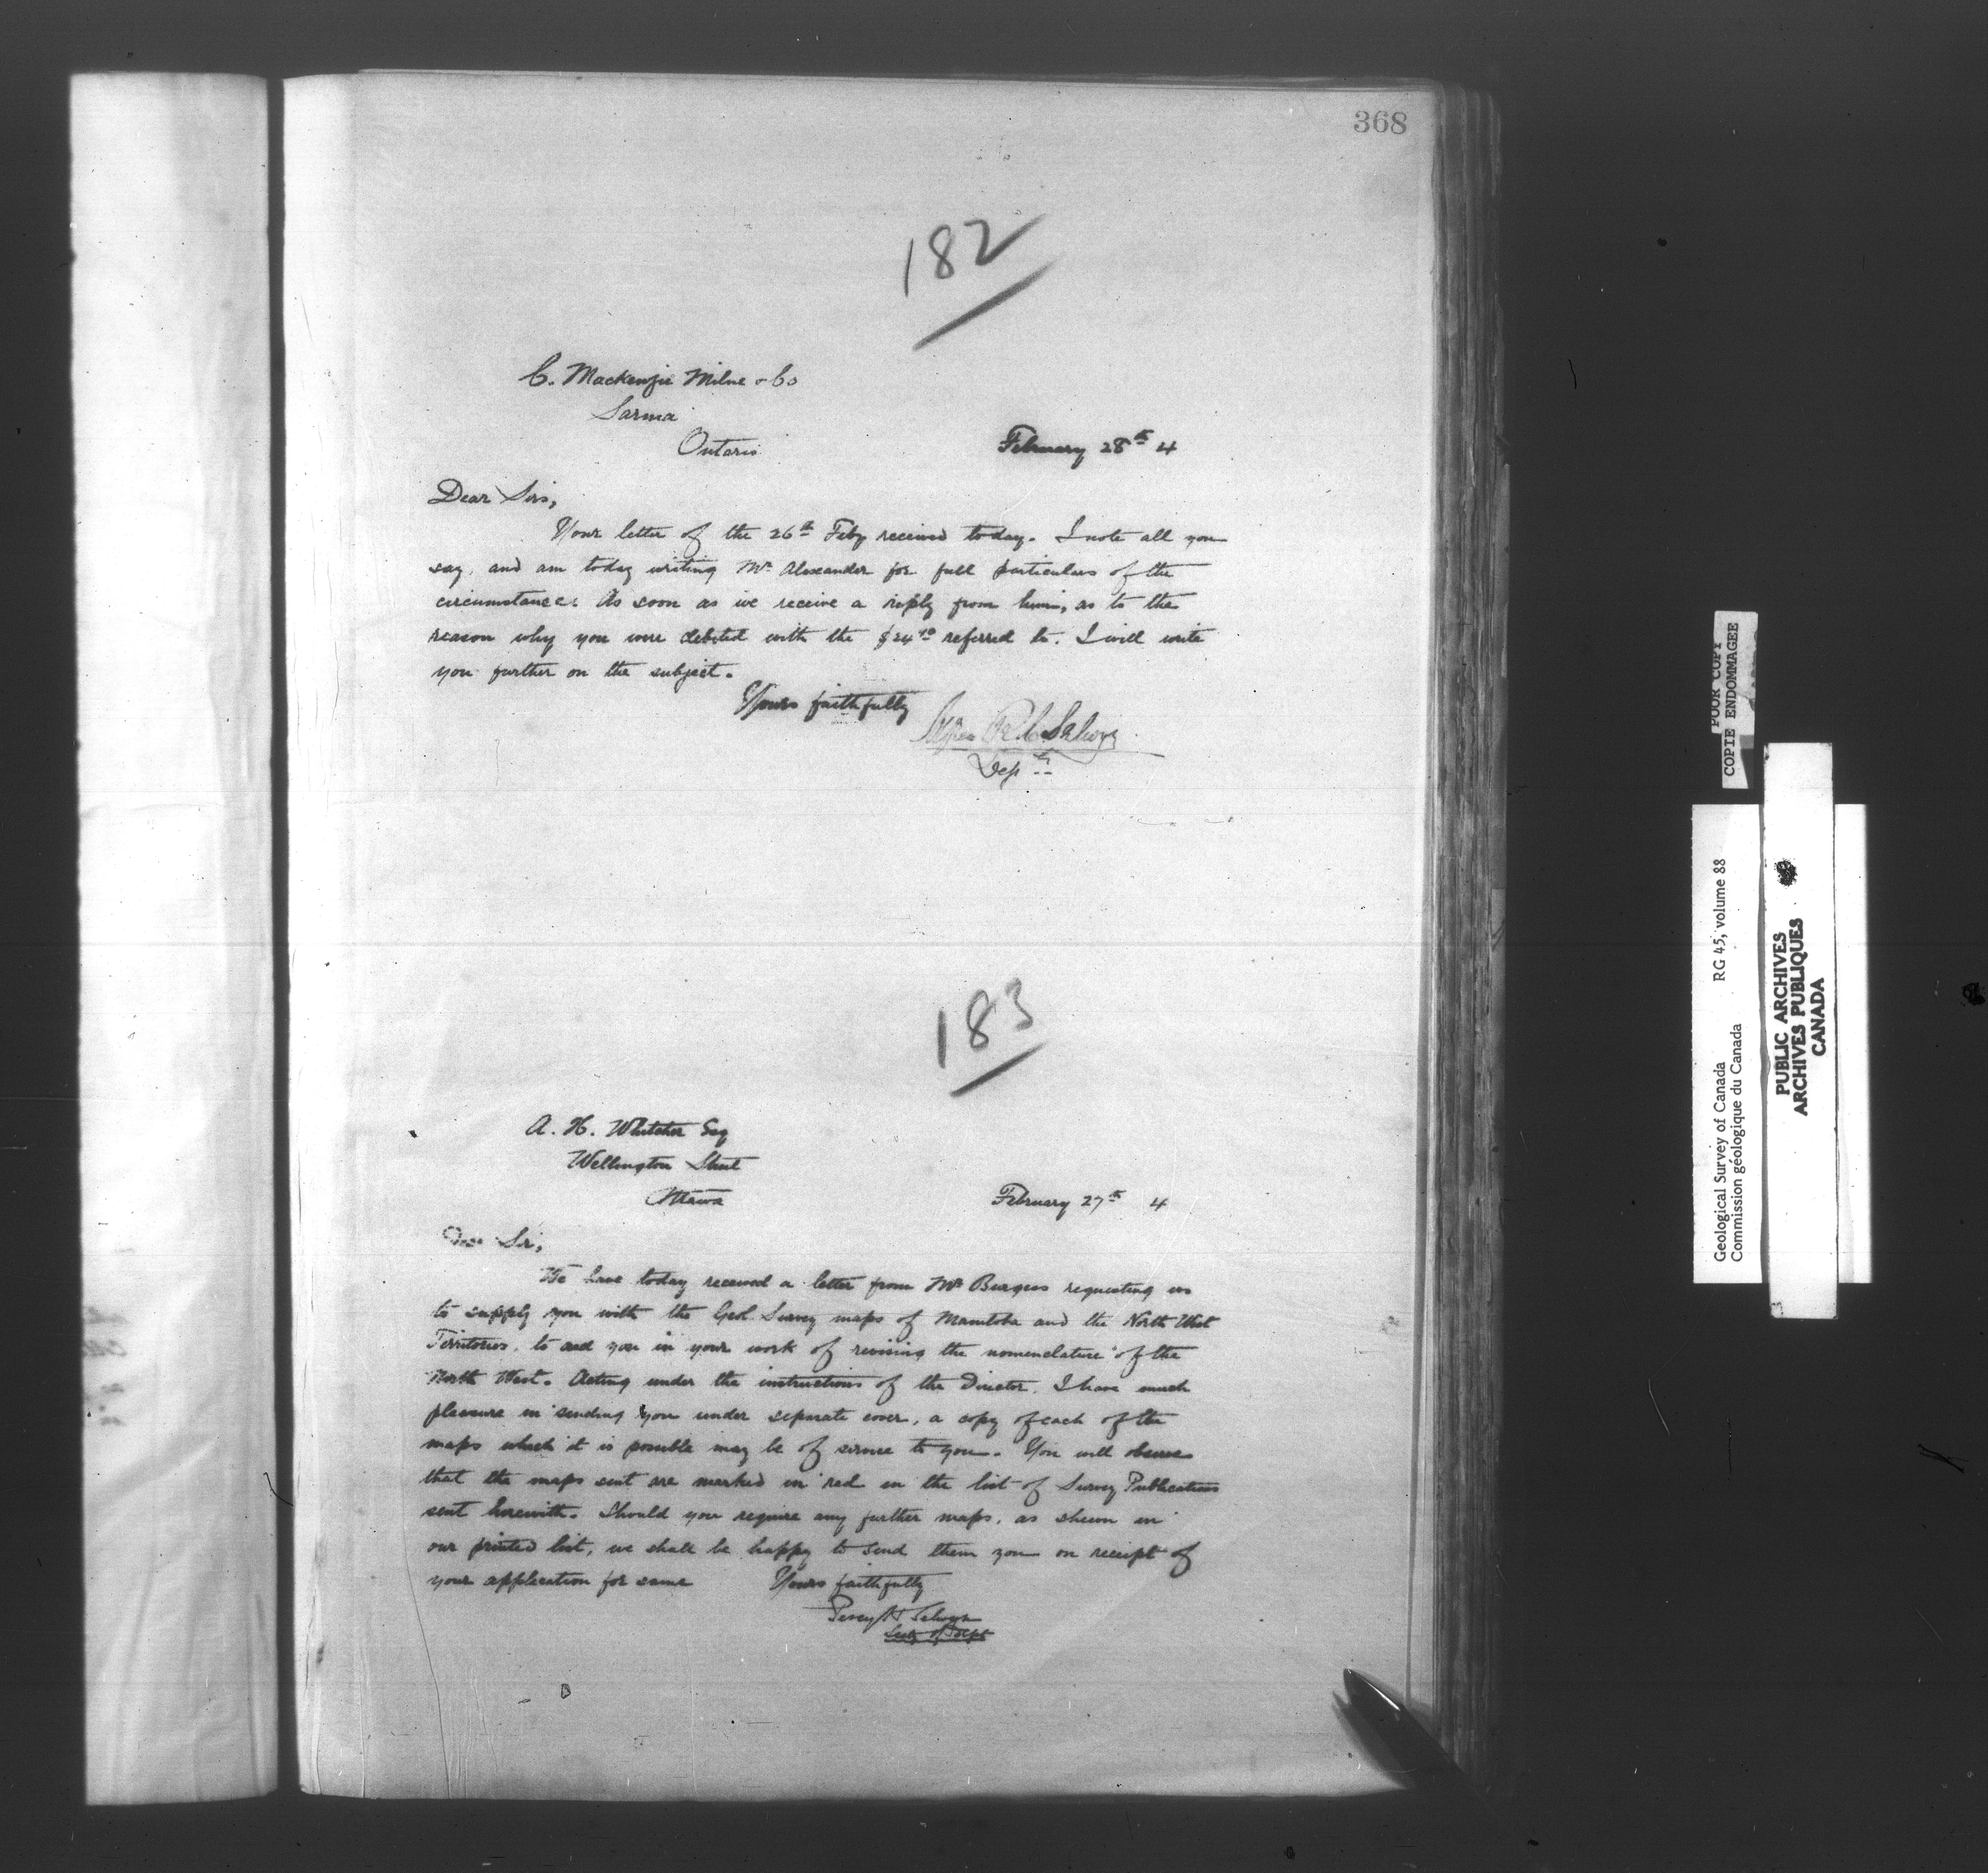 368
182
C. Mackenzie Milne & Co
Sarnia
Ontario
February 28th 4
Dear Sirs,
Your letter of the 26th Feby received today. I note all you
say, and am today writing Mr Alexander for full particulars of the
circumstances. As soon as we receive a reply from him, as to the
reason why you were debited with the $24.10 referred to. I will write
you further on the subject.
Yours faithfully
Selwyn
Dept
183
A. H. Whitcher Esq
Wellington Street
Ottawa
February 27th 4
Dear Sir,
We have today received a letter from Mr Burgess requesting us
to supply you with the Geol. Survey maps of Manitoba and the North West
Territories, to aid you in your work of revising the nomenclature of the
North West. Acting under the instructions of the Director, I have much
pleasure in sending you under separate cover, a copy of each of the
maps which it is possible may be of service to you. You will observe
that the maps sent are marked in red in the list of Survey Publications
sent herewith. Should you require any further maps, as shewn in
our printed list, we shall be happy to send them you on receipt of
your application for same
Yours faithfully
Percy H Selwyn
Secty of Dept
POOR COPY
COPIE ENDOMMAGEE
Geological Survey of Canada RG 45, volume 88
Commission géologique du Canada
PUBLIC ARCHIVES
ARCHIVES PUBLIQUES
CANADA